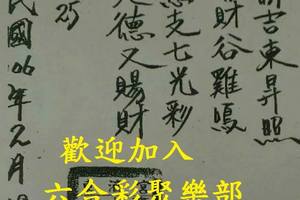 吉東昇照
財谷雞鳴
支七光彩
德又賜財
25
民國06年2月
歡迎加入
六合彩聚樂部